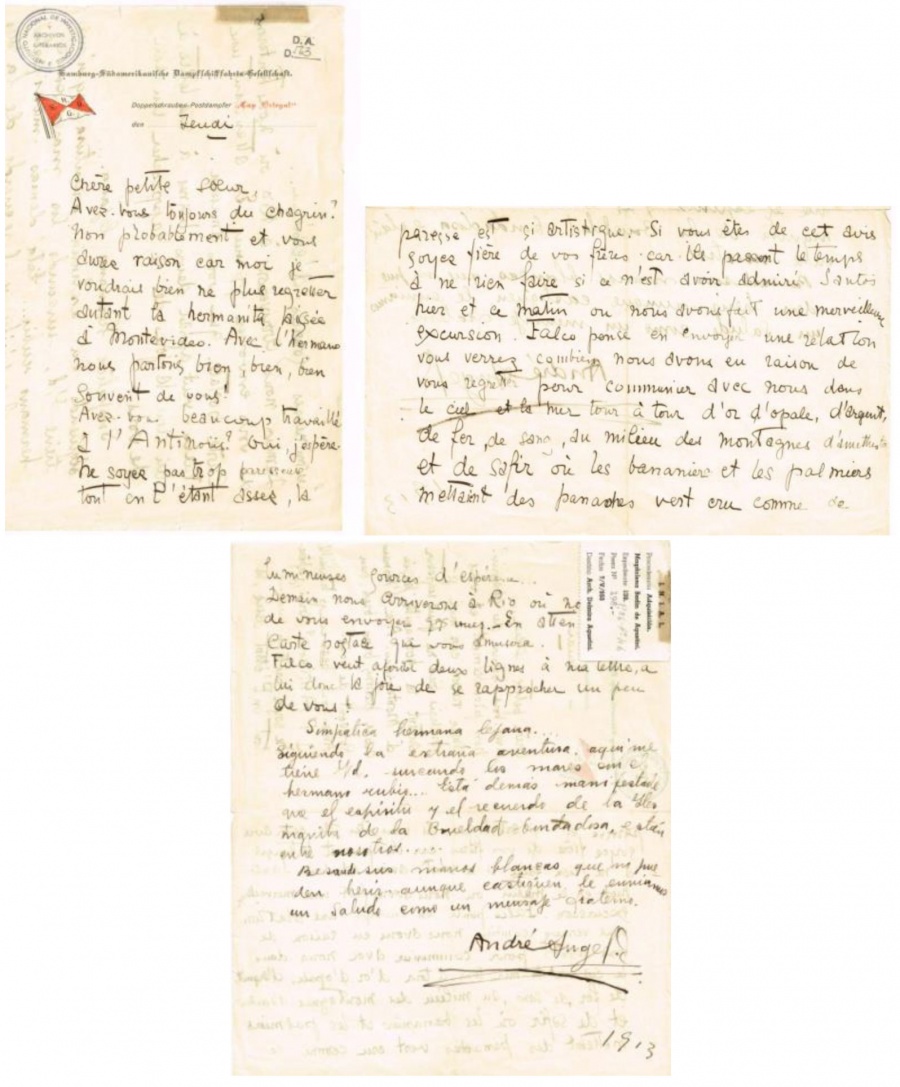 INSTITUTO NACIONAL DE INVESTIGACIONES Y ARCHIVOS LITERARIOS
D.A.
D. 123
Hamburg-Südamerikanische Dampfschifffahrts-Gesellschaft.
Doppelschrauben-Postdampfer "Cap Ortegal"
den Jeudi
Chère petite soeur,
Avez-vous toujours du chagrin?
Non probablement et vous
avez raison car moi je
voudrais bien ne plus regretter
autant la hermanita
à Montevideo. Avec l'hermano
nous parlons bien, bien, bien
souvent de vous!
Avez-vous beaucoup travaillé
à l'Antinoüs? Oui j'espère
ne soyez pas trop paresseuse
tout en l'étant assez, la
paresse est si artistique. Si vous êtes de cet avis
soyez fière de vos frères car ils passent le temps
à ne rien faire si ce n'est avoir admiré Santos
hier et ce matin ou nous avons fait une merveilleuse
excursion. Falco pense en envoyer une relation
vous verrez combien nous avons eu raison de
vous regretter pour communier avec nous dans
le ciel et la mer tour à tour d'or d'opale, d'argent,
de fer, de sang, au milieu des montagnes d'améthiste
et de safir où les bananiers et les palmiers
mettaient des panaches vert cru comme de
lumineuses sources d'espérance...
Demain nous arriverons à Rio où
de vous envoyer En atten
carte postale que vous amusera.
Falco veut ajouter deux lignes à ma lettre, a
lui donc la joie de se rapprocher un peu
de vous!
Simpatica hermana lejana...
Siguiendo la extraña aventura, aqui me
tiene Ud. surcando los mares con el
hermano rubio... Está demás manifestarle
que el espiritu y el recuerdo de la
de la Crueldad bondadosa, están
entre nosotros....
Besando sus manos blancas que no pue
den herir aunque castiguen le enviamos
un saludo como un mensaje fraterno.
André Angel F.
1913
I.N.I.A.L.
Procedencia Adquisición.